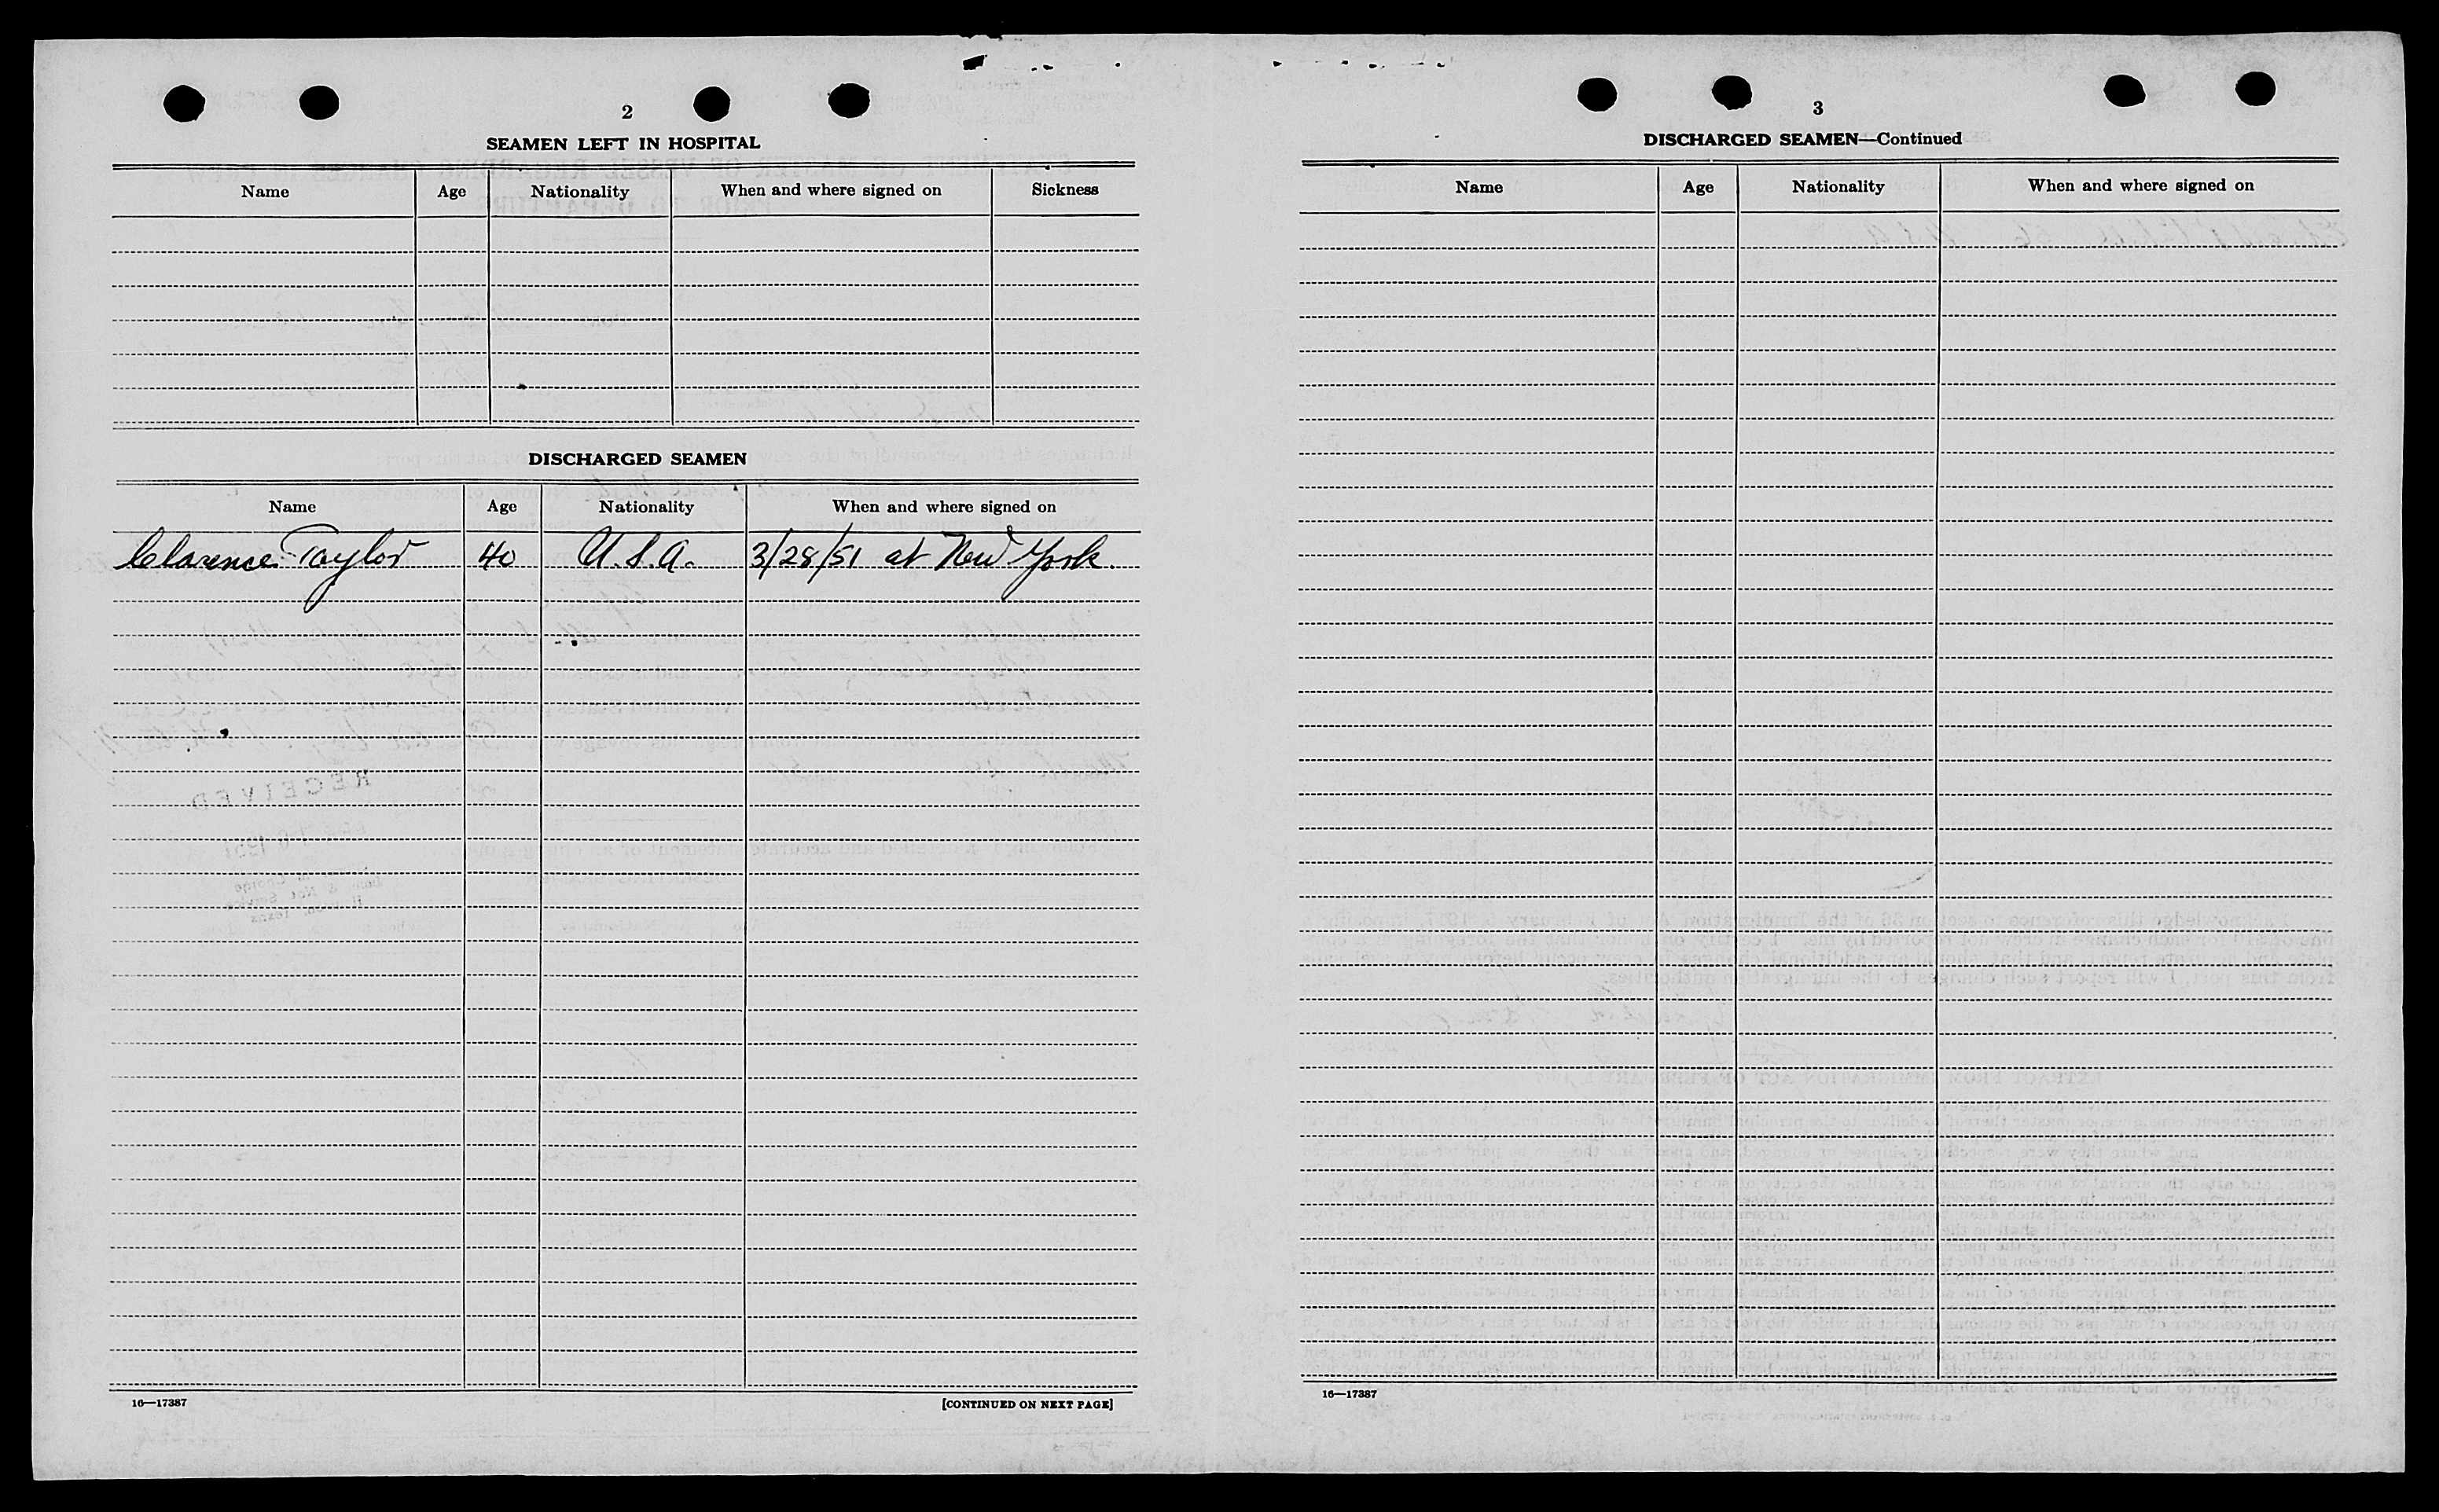 2
SEAMEN LEFT IN HOSPITAL
Name Age Nationality When and where signed on Sickness
DISCHARGED SEAMEN
Name Age Nationality When and where signed on
Clarence Taylor 40 U.S.A. 3/28/51 at New York.
RECEIVED
16—17387 [CONTINUED ON NEXT PAGE]
3
DISCHARGED SEAMEN—Continued
Name Age Nationality When and where signed on
16—17387